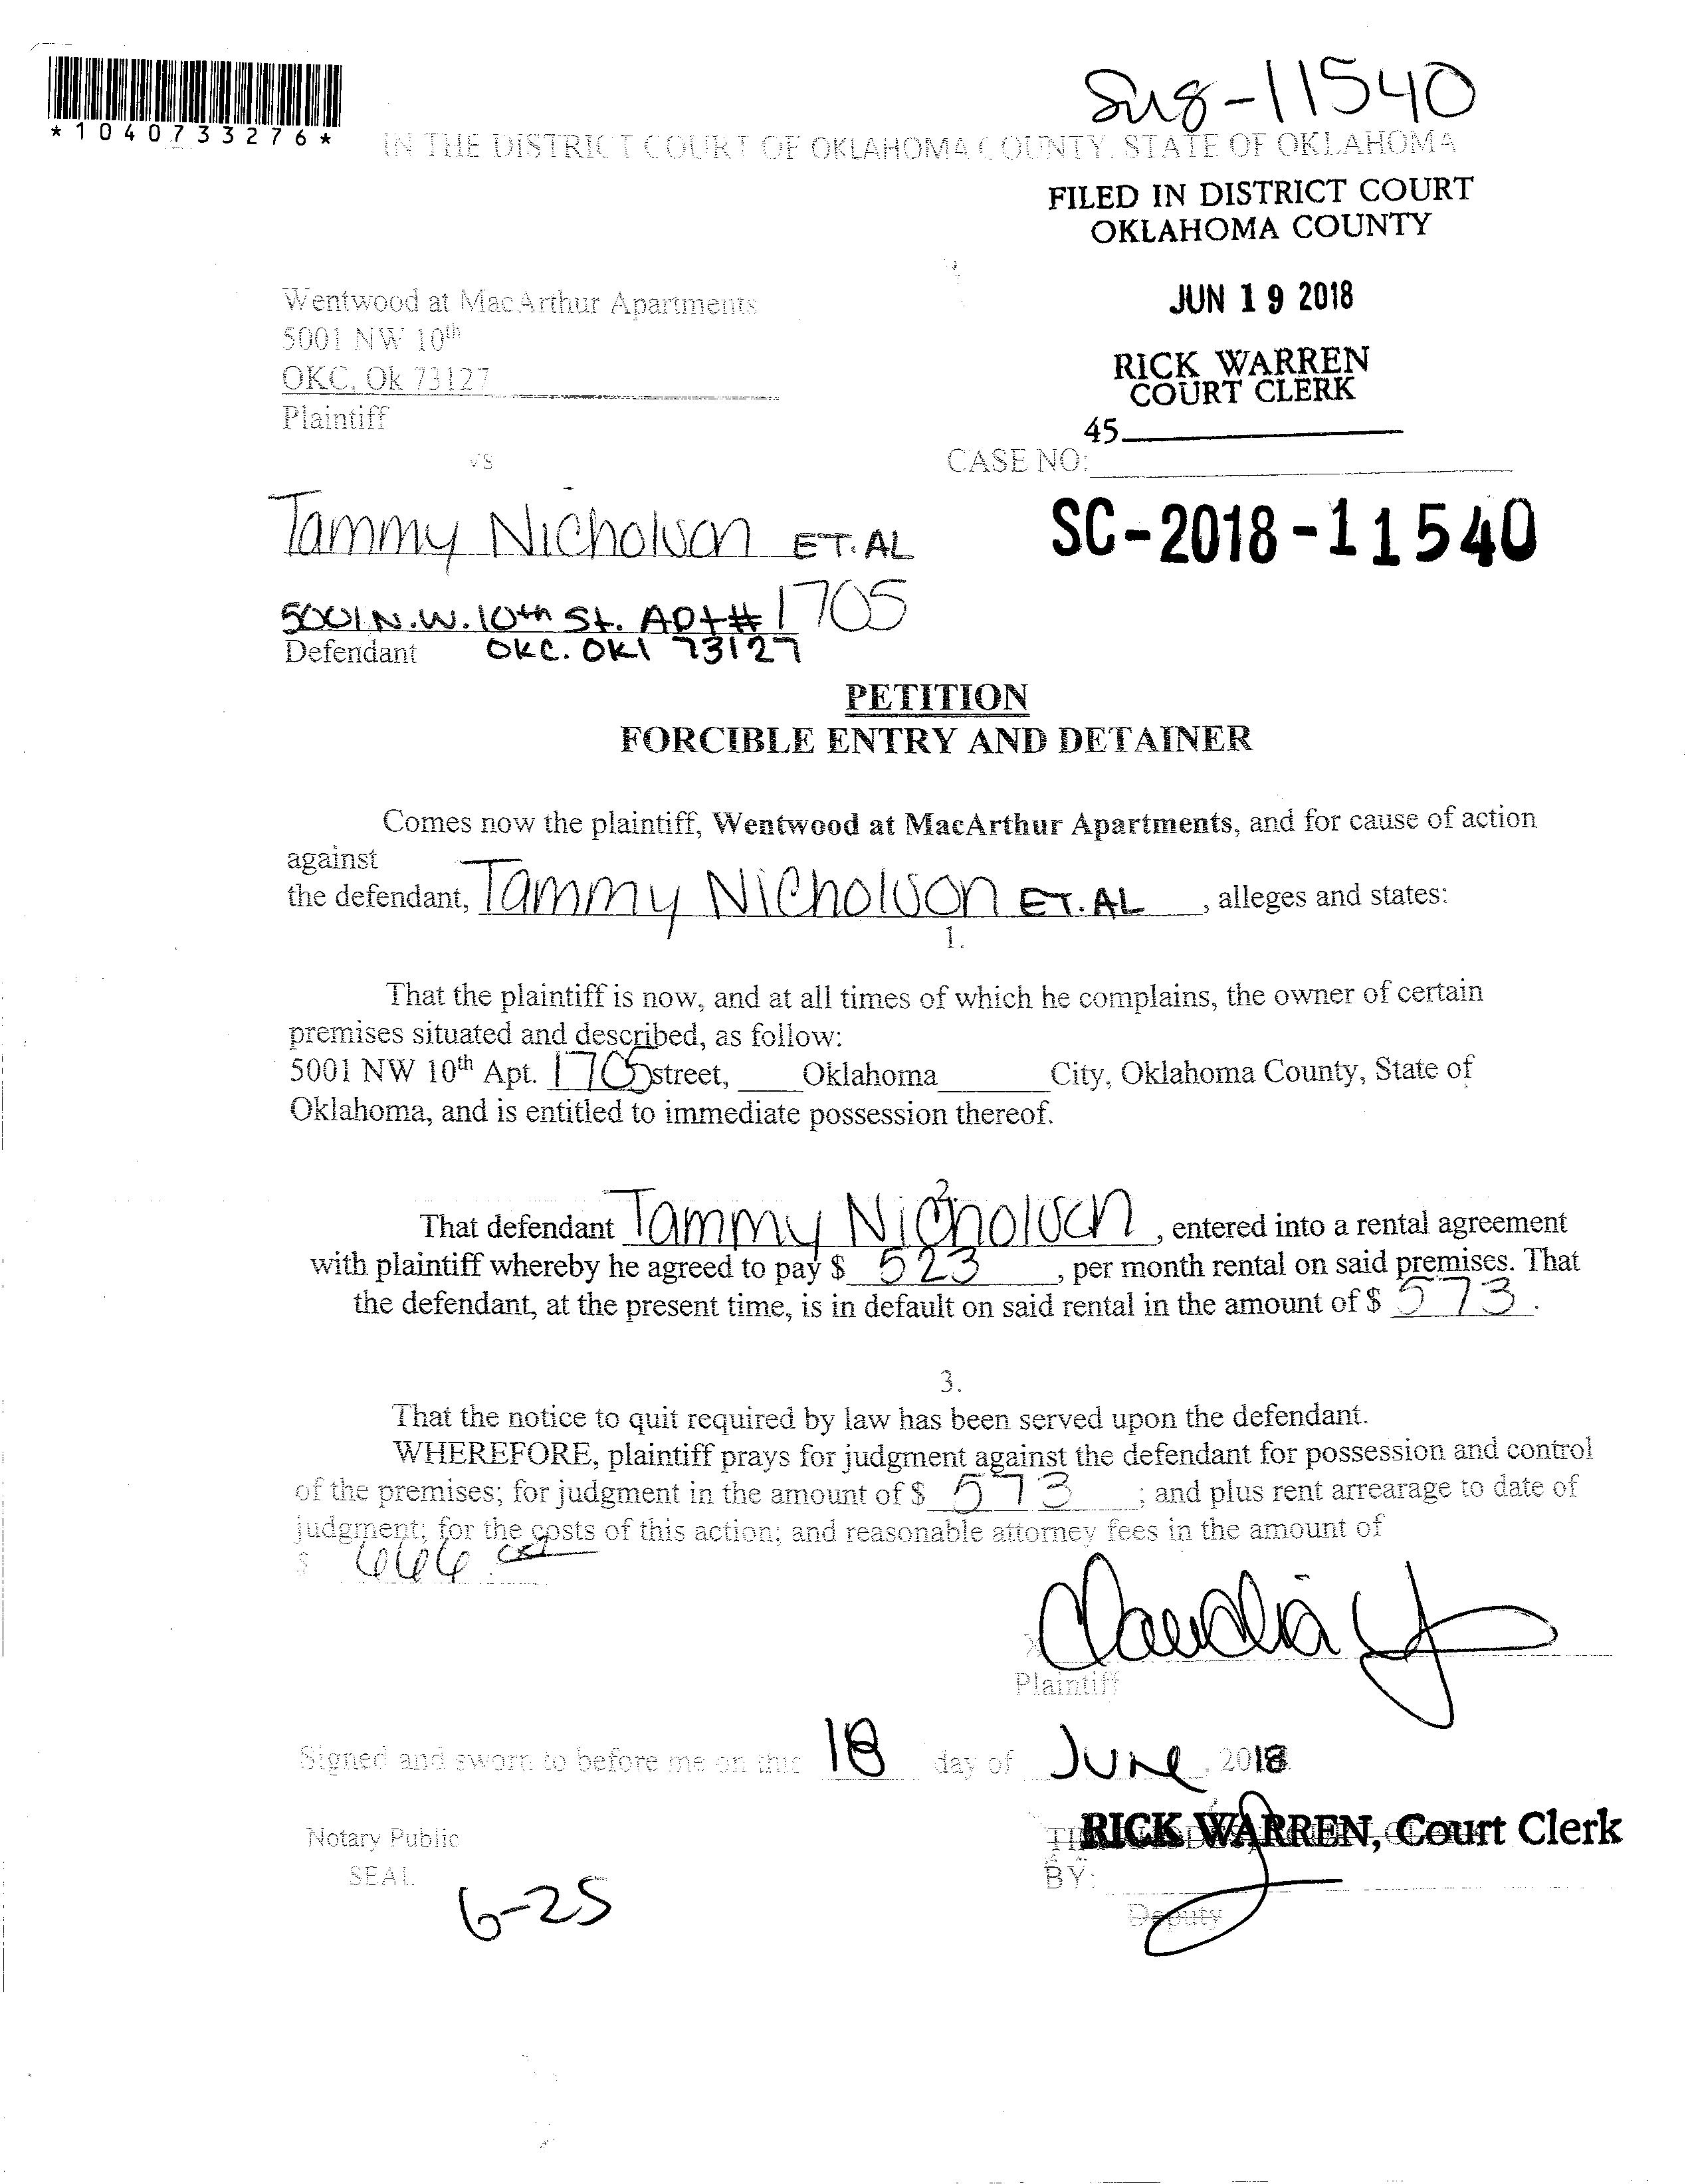 *1040733276*
-11540
IN THE DISTRICT COURT OF OKLAHOMA COUNTY, STATE OF OKLAHOMA
FILED IN DISTRICT COURT
OKLAHOMA COUNTY
JUN 19 2018
RICK WARREN
COURT CLERK
45
Wentwood at MacArthur Apartments
5001 NW 10th
OKC, Ok 73127
Plaintiff
vs
CASE NO:
Tammy Nicholson ET. AL
SC-2018-11540
5001 N.W. 10th St. Apt# 1705
Defendant OKC. Okl 73127
PETITION
FORCIBLE ENTRY AND DETAINER
Comes now the plaintiff, Wentwood at MacArthur Apartments, and for cause of action
against
the defendant, Tammy Nicholson ET. AL , alleges and states:
1.
That the plaintiff is now, and at all times of which he complains, the owner of certain
premises situated and described, as follow:
5001 NW 10th Apt. 1705 street, Oklahoma City, Oklahoma County, State of
Oklahoma, and is entitled to immediate possession thereof.
2
That defendant Tammy Nicholson , entered into a rental agreement
with plaintiff whereby he agreed to pay $ 523 , per month rental on said premises. That
the defendant, at the present time, is in default on said rental in the amount of $ 573 .
3.
That the notice to quit required by law has been served upon the defendant.
WHEREFORE, plaintiff prays for judgment against the defendant for possession and control
of the premises; for judgment in the amount of $ 573 ; and plus rent arrearage to date of
judgment; for the costs of this action; and reasonable attorney fees in the amount of
$
Claudia
Plaintiff
Signed and sworn to before me on this 18 day of June, 2018
Notary Public
RICK WARREN, Court Clerk
SEAL
BY:
6-25
Deputy